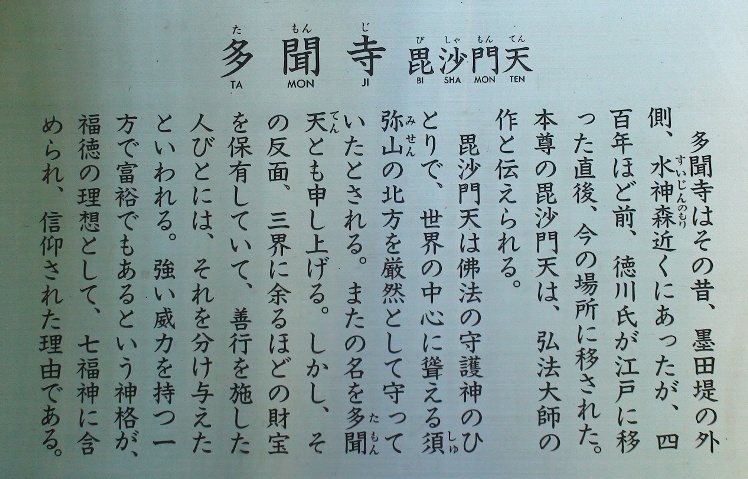 多聞寺 毘沙門天
た もん じ び しゃ もん てん
TA MON JI BI SHA MON TEN
多聞寺はその昔、墨田堤の外
側、水神森近くにあったが、四
すいじんのもり
百年ほど前、徳川氏が江戸に移
った直後、今の場所に移された。
本尊の毘沙門天は、弘法大師の
作と伝えられる。
毘沙門天は佛法の守護神のひ
とりで、世界の中心に聳える須
しゅ
弥山の北方を厳然として守って
みせん
いたとされる。またの名を多聞
たもん
天とも申し上げる。しかし、そ
てん
の反面、三界に余るほどの財宝
を保有していて、善行を施した
人びとには、それを分け与えた
といわれる。強い威力を持つ一
方で富裕でもあるという神格が、
福徳の理想として、七福神に含
められ、信仰された理由である。